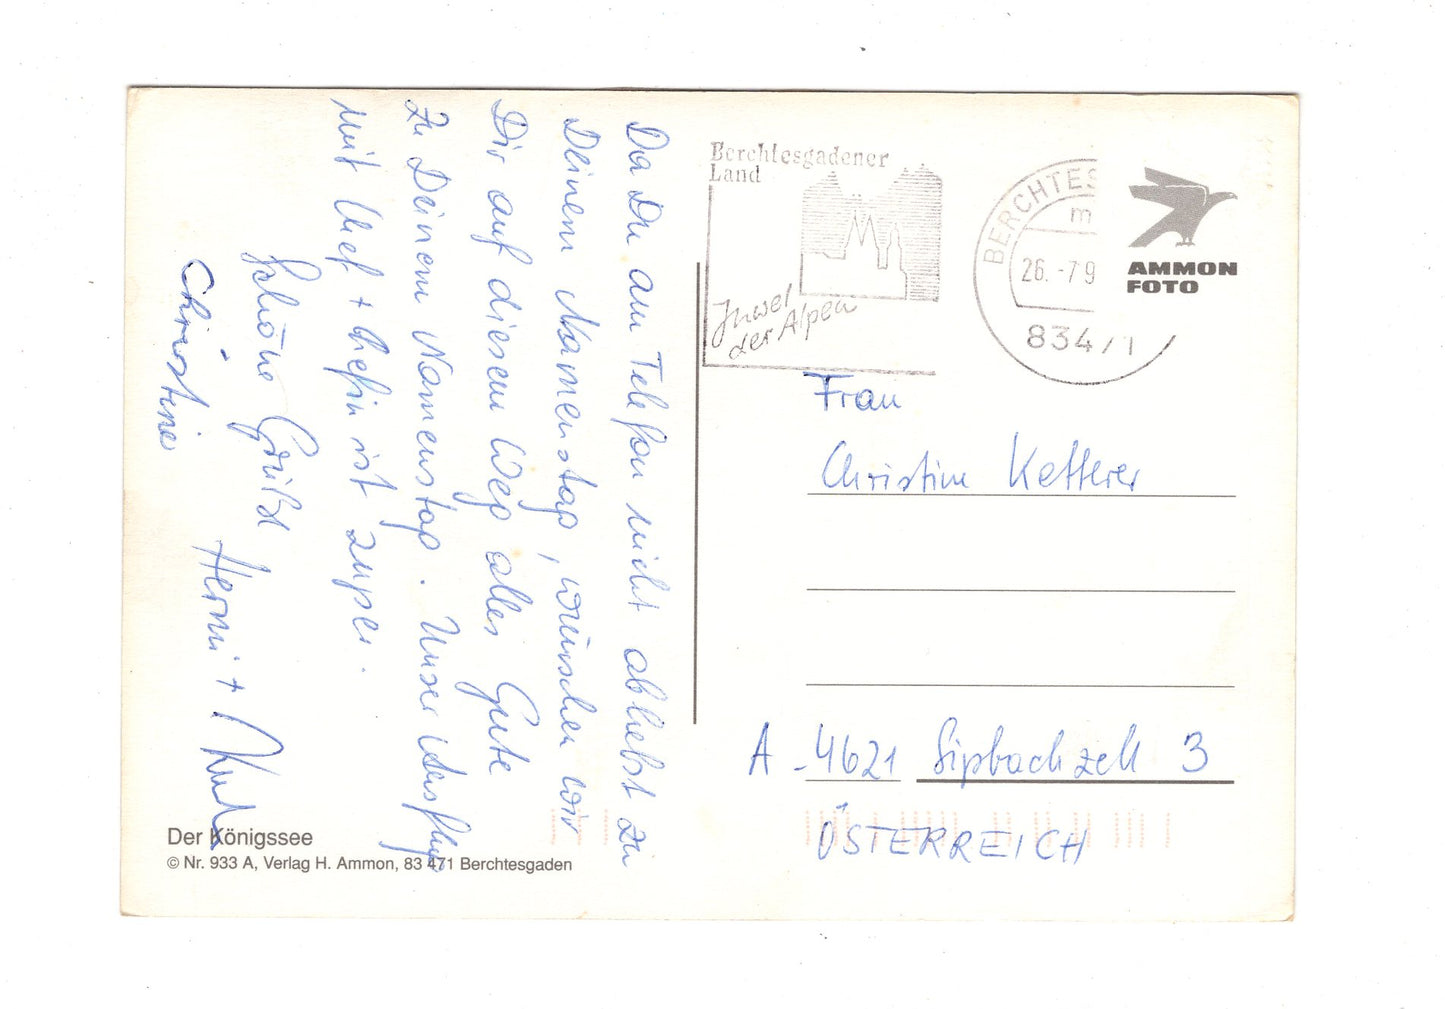 Da Du am Telefon nicht abhebst zu
Deinem Namenstag, wünschen wir
Dir auf diesem Weg alles Gute
zu Deinem Namenstag. Unser Ausflug
mit Chef + Chefin ist super.
Schöne Grüße
Christine
Hermi +
Berchtesgadener
Land
Juwel
der Alpen
BERCHTES
m
26.-7 9
83471
AMMON
FOTO
Frau
Christine Ketterer
A - 4621 Sipbachzell 3
ÖSTERREICH
Der Königssee
© Nr. 933 A, Verlag H. Ammon, 83 471 Berchtesgaden